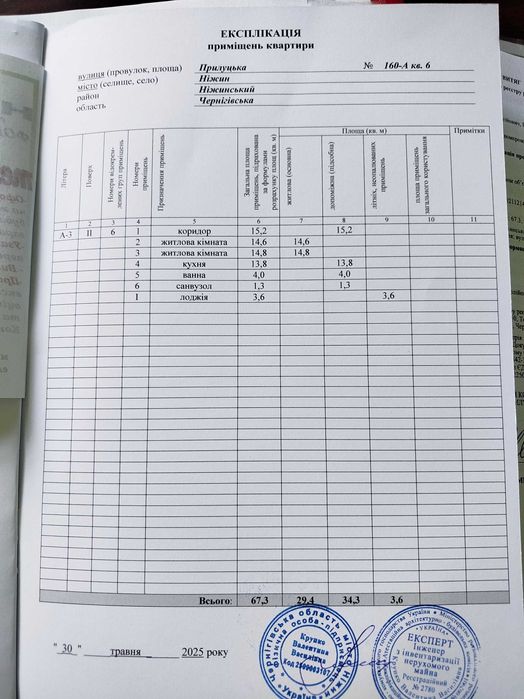 ЕКСПЛІКАЦІЯ
приміщень квартири
вулиця (провулок, площа) Прилуцька № 160-А кв. 6
місто (селище, село) Ніжин
район Ніжинський
область Чернігівська
Літера
Поверх
Номери відокрем-
лених груп приміщень
Номери
приміщень
Призначення приміщень
Загальна площа
приміщень, підрахована
за формулами
розрахунку площ (кв. м)
Площа (кв. м)
житлова (основна)
допоміжна (підсобна)
літніх, неопалюваних
приміщень
площа приміщень
загального користування
Примітки
1 2 3 4 5 6 7 8 9 10 11
А-3 II 6 1 коридор 15,2 15,2
2 житлова кімната 14,6 14,6
3 житлова кімната 14,8 14,8
4 кухня 13,8 13,8
5 ванна 4,0 4,0
6 санвузол 1,3 1,3
I лоджія 3,6 3,6
Всього: 67,3 29,4 34,3 3,6
" 30 " травня 2025 року
Чернігівська область місто Ніжин
Фізична особа-підприємець
Крупко
Валентина
Василівна
Україна
УКРАЇНА
ЕКСПЕРТ
Інженер
з інвентаризації
нерухомого
майна
Реєстраційний